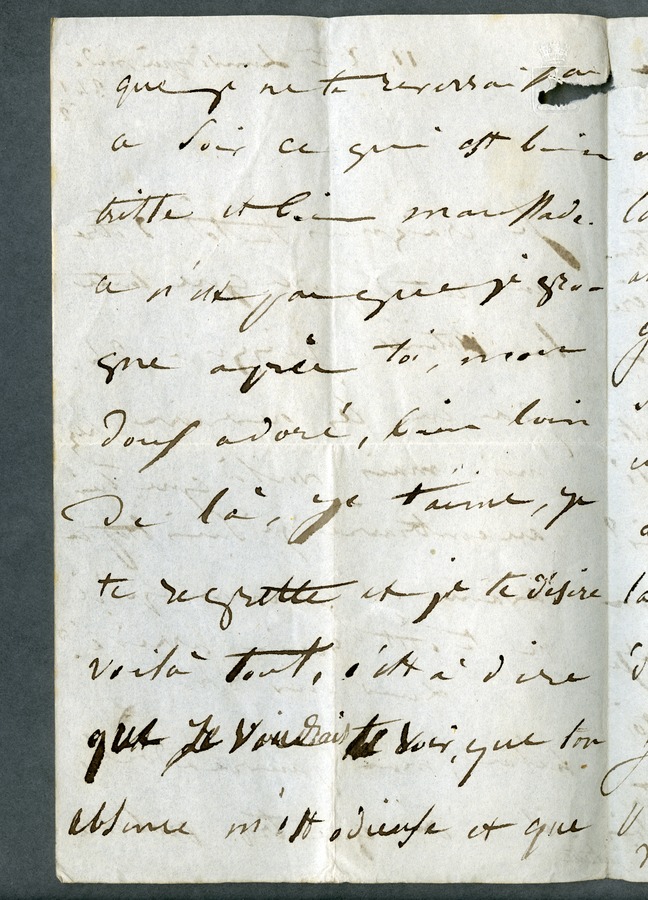 que je ne te reverrai pas
ce soir ce qui est bien
triste et bien maussade.
ce n'est pas que je gro-
gne après toi, mon
doux adoré, bien loin
de là, je t'aime, je
te regrette et je te désire
voilà tout, c'est à dire
que je voudrais te voir, que ton
absence m'est odieuse et que